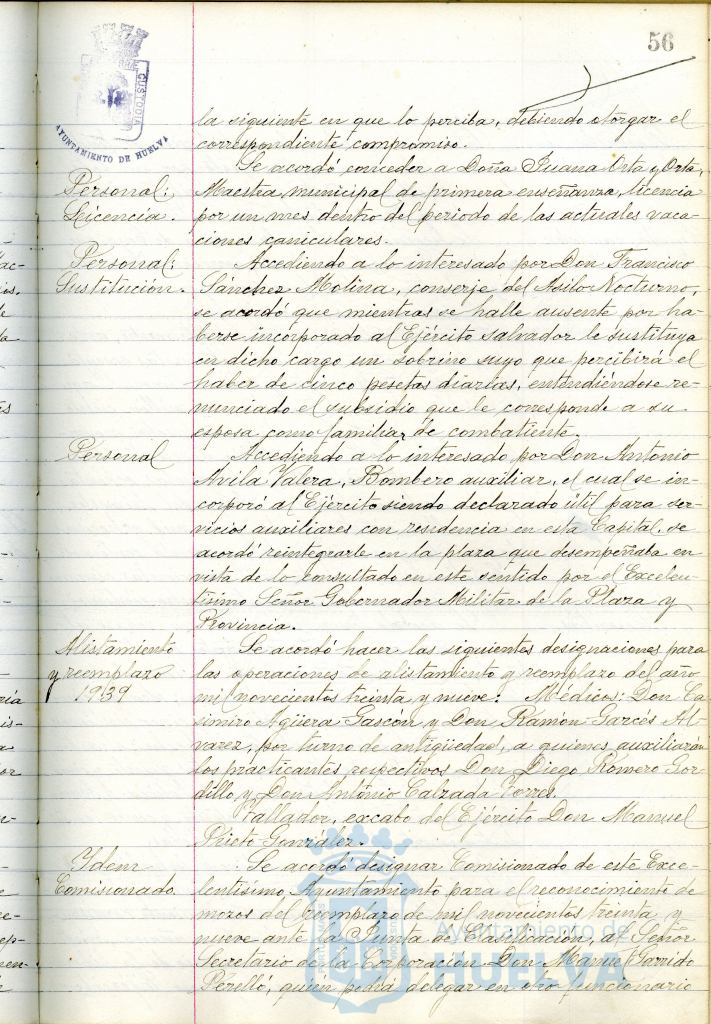 56
CUSTODIA
AYUNTAMIENTO DE HUELVA
la siguiente en que lo perciba, debiendo otorgar el
correspondiente compromiso.
Personal:
Licencia.
Se acordó conceder a Doña Juana Orta y Orta,
Maestra municipal de primera enseñanza, licencia
por un mes dentro del periodo de las actuales vaca-
ciones caniculares.
Personal:
Sustitución.
Accediendo a lo interesado por Don Francisco
Sánchez Molina, conserje del Asilo Nocturno,
se acordó que mientras se halle ausente por ha-
berse incorporado al Ejército salvador le sustituya
en dicho cargo un sobrino suyo que percibirá el
haber de cinco pesetas diarias, entendiéndose re-
nunciado el subsidio que le corresponde a su
esposa como familiar de combatiente.
Personal
Accediendo a lo interesado por Don Antonio
Avila Valera, Bombero auxiliar, el cual se in-
corporó al Ejército siendo declarado útil para ser-
vicios auxiliares con residencia en esta Capital, se
acordó reintegrarle en la plaza que desempeñaba en
vista de lo consultado en este sentido por el Excelen-
tísimo Señor Gobernador Militar de la Plaza y
Provincia.
Alistamiento
y reemplazo
1939
Se acordó hacer las siguientes designaciones para
las operaciones de alistamiento y reemplazo del año
mil novecientos treinta y nueve: Médicos: Don Ca-
simiro Agüera Gascón y Don Ramón Garcés Al-
varez, por turno de antigüedad, a quienes auxiliarán
los practicantes respectivos Don Diego Romero Gor-
dillo y Don Antonio Calzada Torres.
Tallador, excabo del Ejército Don Manuel
Prieto González.
Ydem
Comisionado
Se acordó designar Comisionado de este Exce-
lentísimo Ayuntamiento para el reconocimiento de
mozos del reemplazo de mil novecientos treinta y
nueve ante la Junta de Clasificación, al Señor
Secretario de la Corporación Don Manuel Garrido
Perelló, quién podrá delegar en otro funcionario
Ayuntamiento de
HUELVA